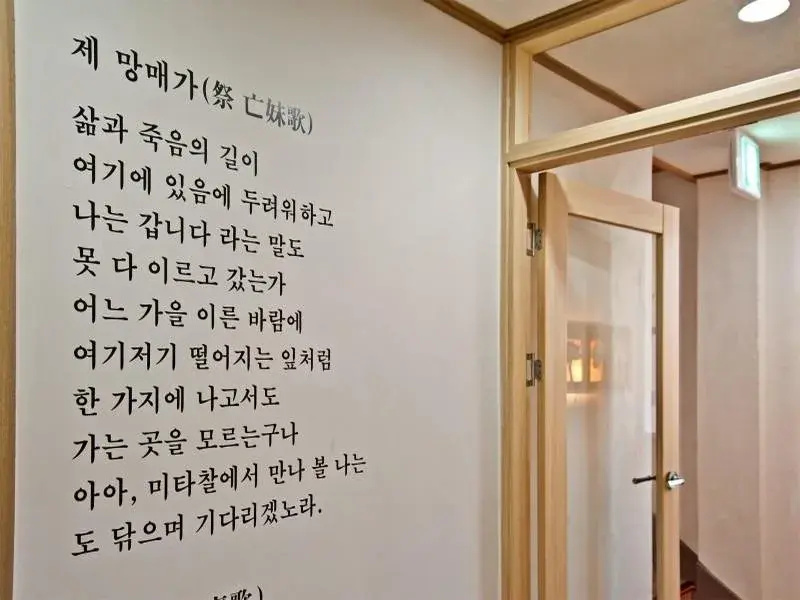 제 망매가(祭 亡妹歌)
삶과 죽음의 길이
여기에 있음에 두려워하고
나는 갑니다 라는 말도
못 다 이르고 갔는가
어느 가을 이른 바람에
여기저기 떨어지는 잎처럼
한 가지에 나고서도
가는 곳을 모르는구나
아아, 미타찰에서 만나 볼 나는
도 닦으며 기다리겠노라.
歌)